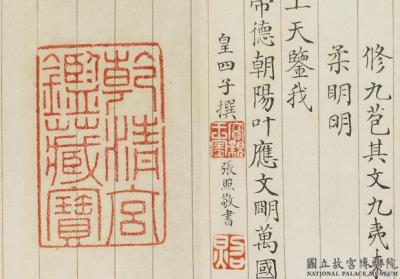 修九苞其文九夷
柔明明
上天鑒我
帝德朝陽叶應文明萬國
皇四子撰
張照敬書
乾清宮
鑑藏寶
國立故宮博物院
NATIONAL PALACE MUSEUM